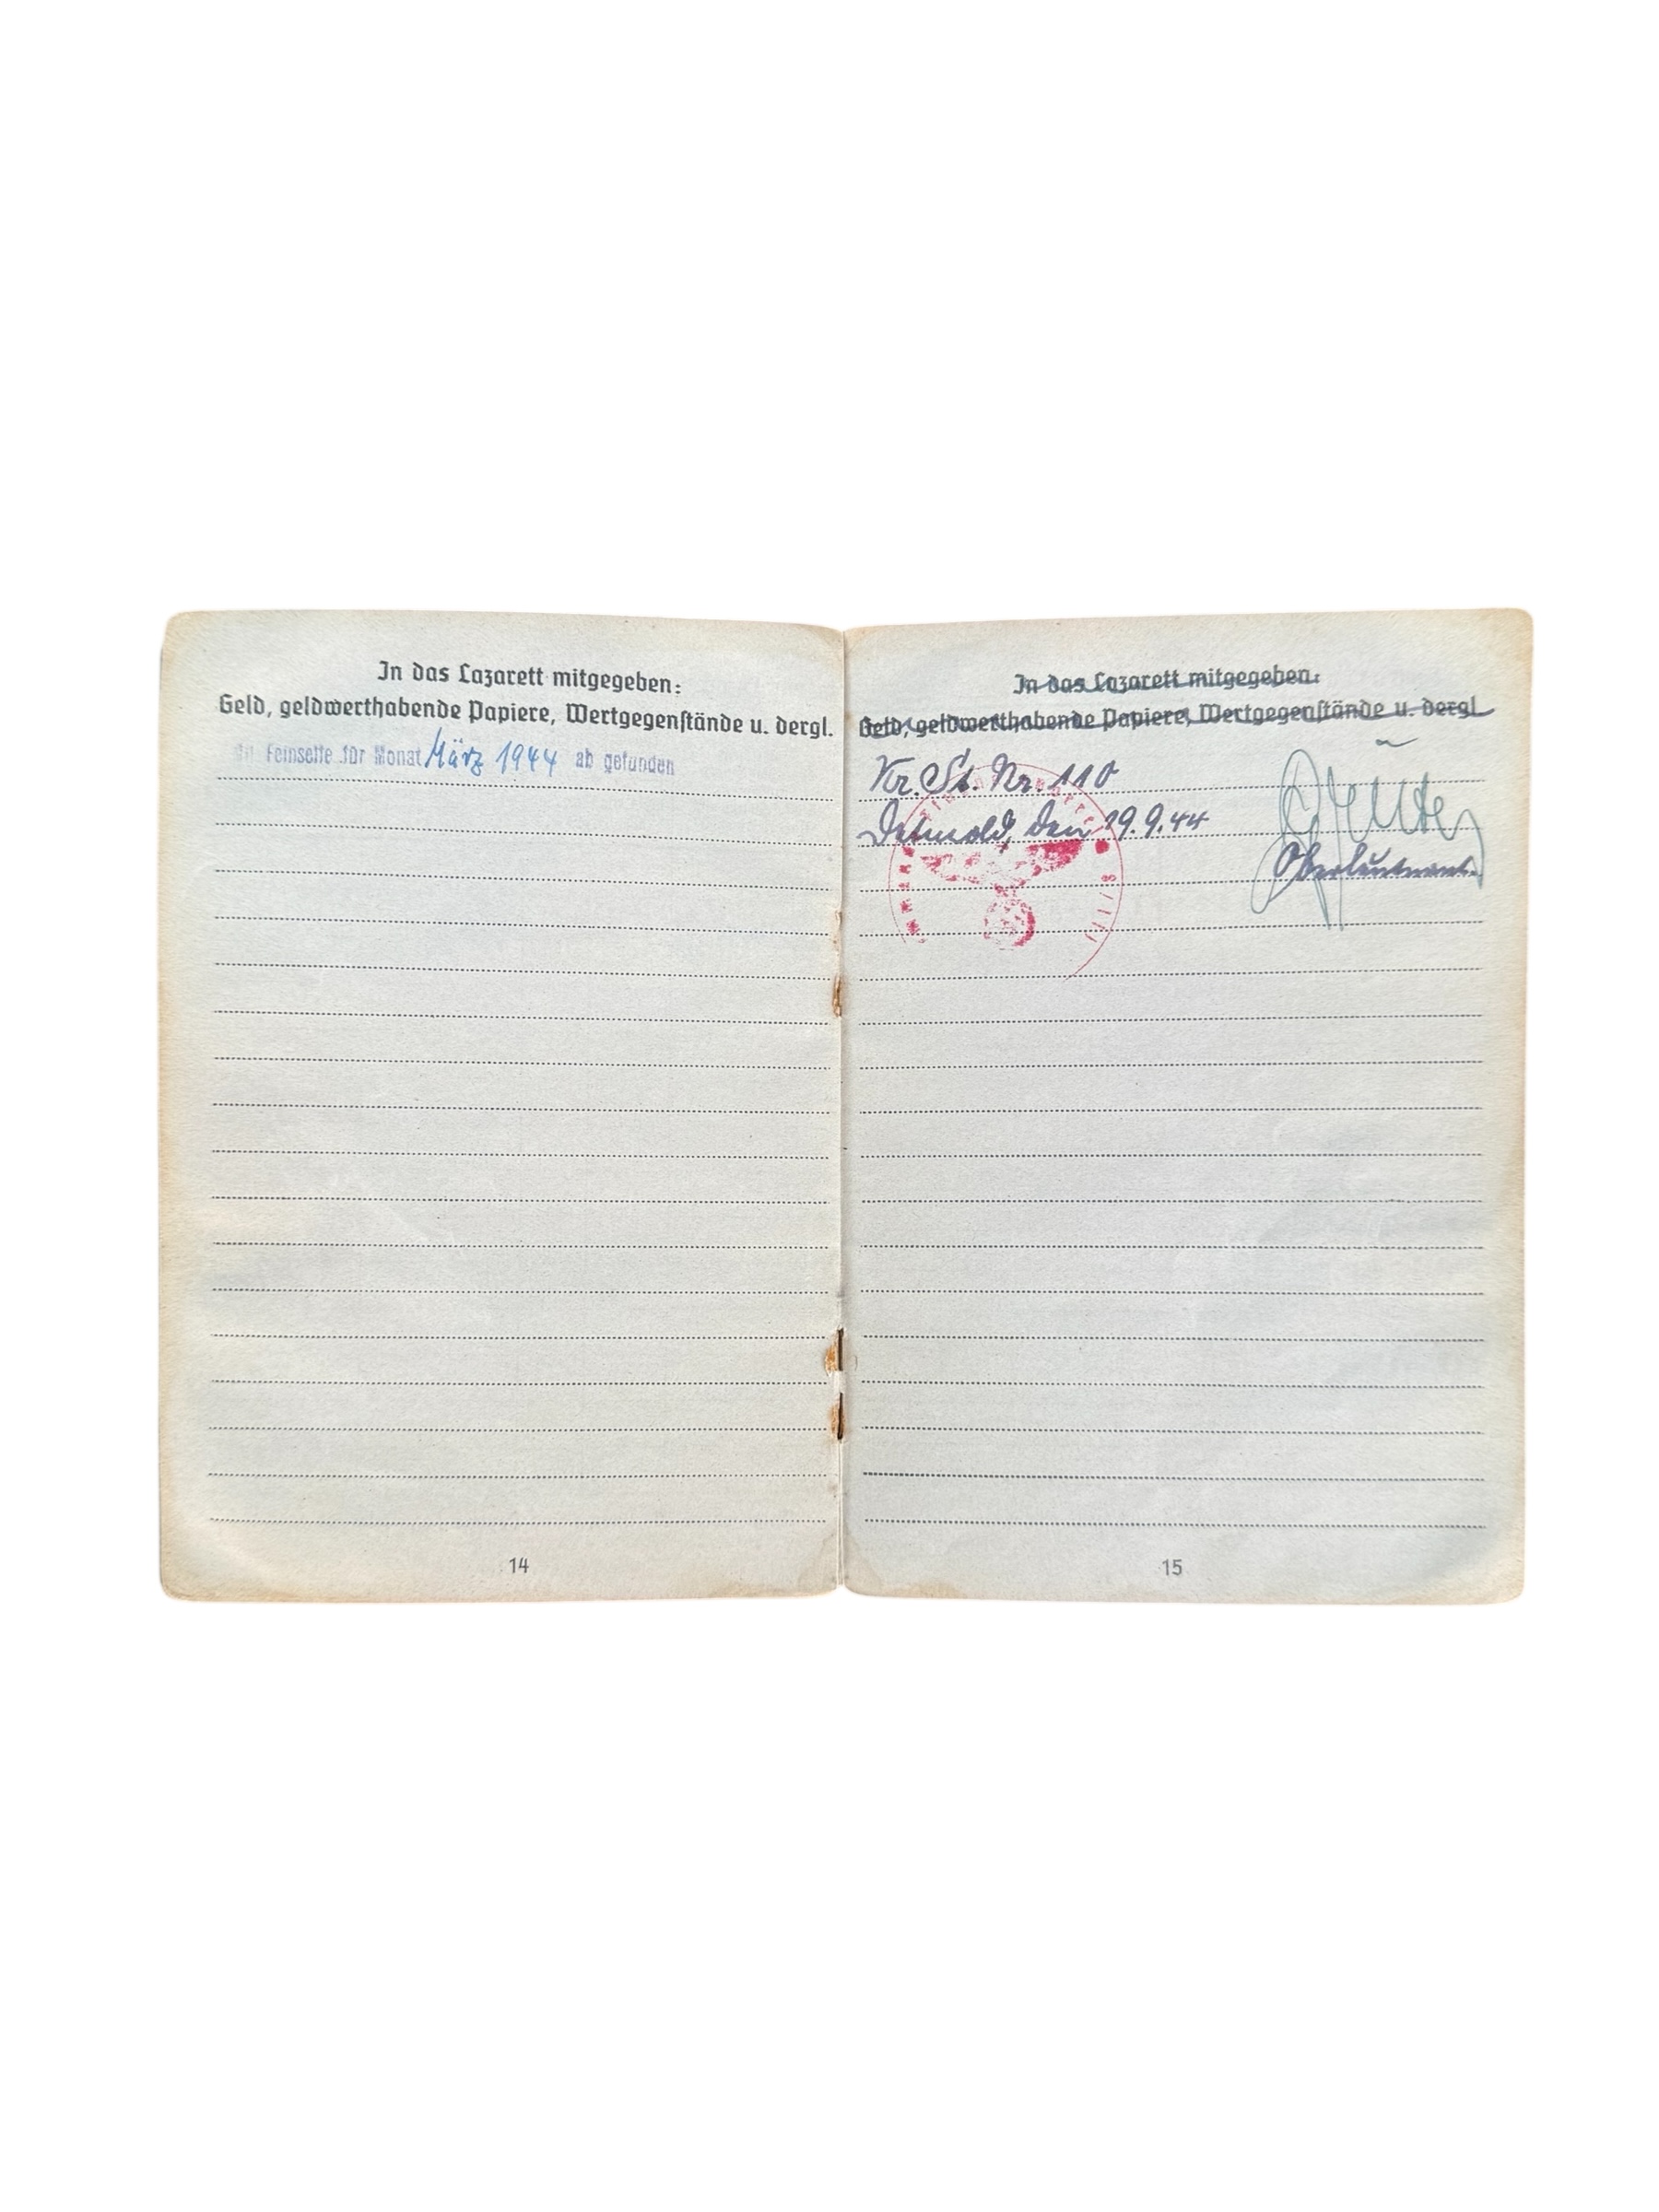 In das Lazarett mitgegeben:
Geld, geldwerthabende Papiere, Wertgegenstände u. dergl.
Mit Feinseife für Monat März 1944 ab gefunden
14
In das Lazarett mitgegeben:
Geld, geldwerthabende Papiere, Wertgegenstände u. dergl.
Kr. St. Nr. 110
Detmold, den 19.9.44
Oberleutnant.
15